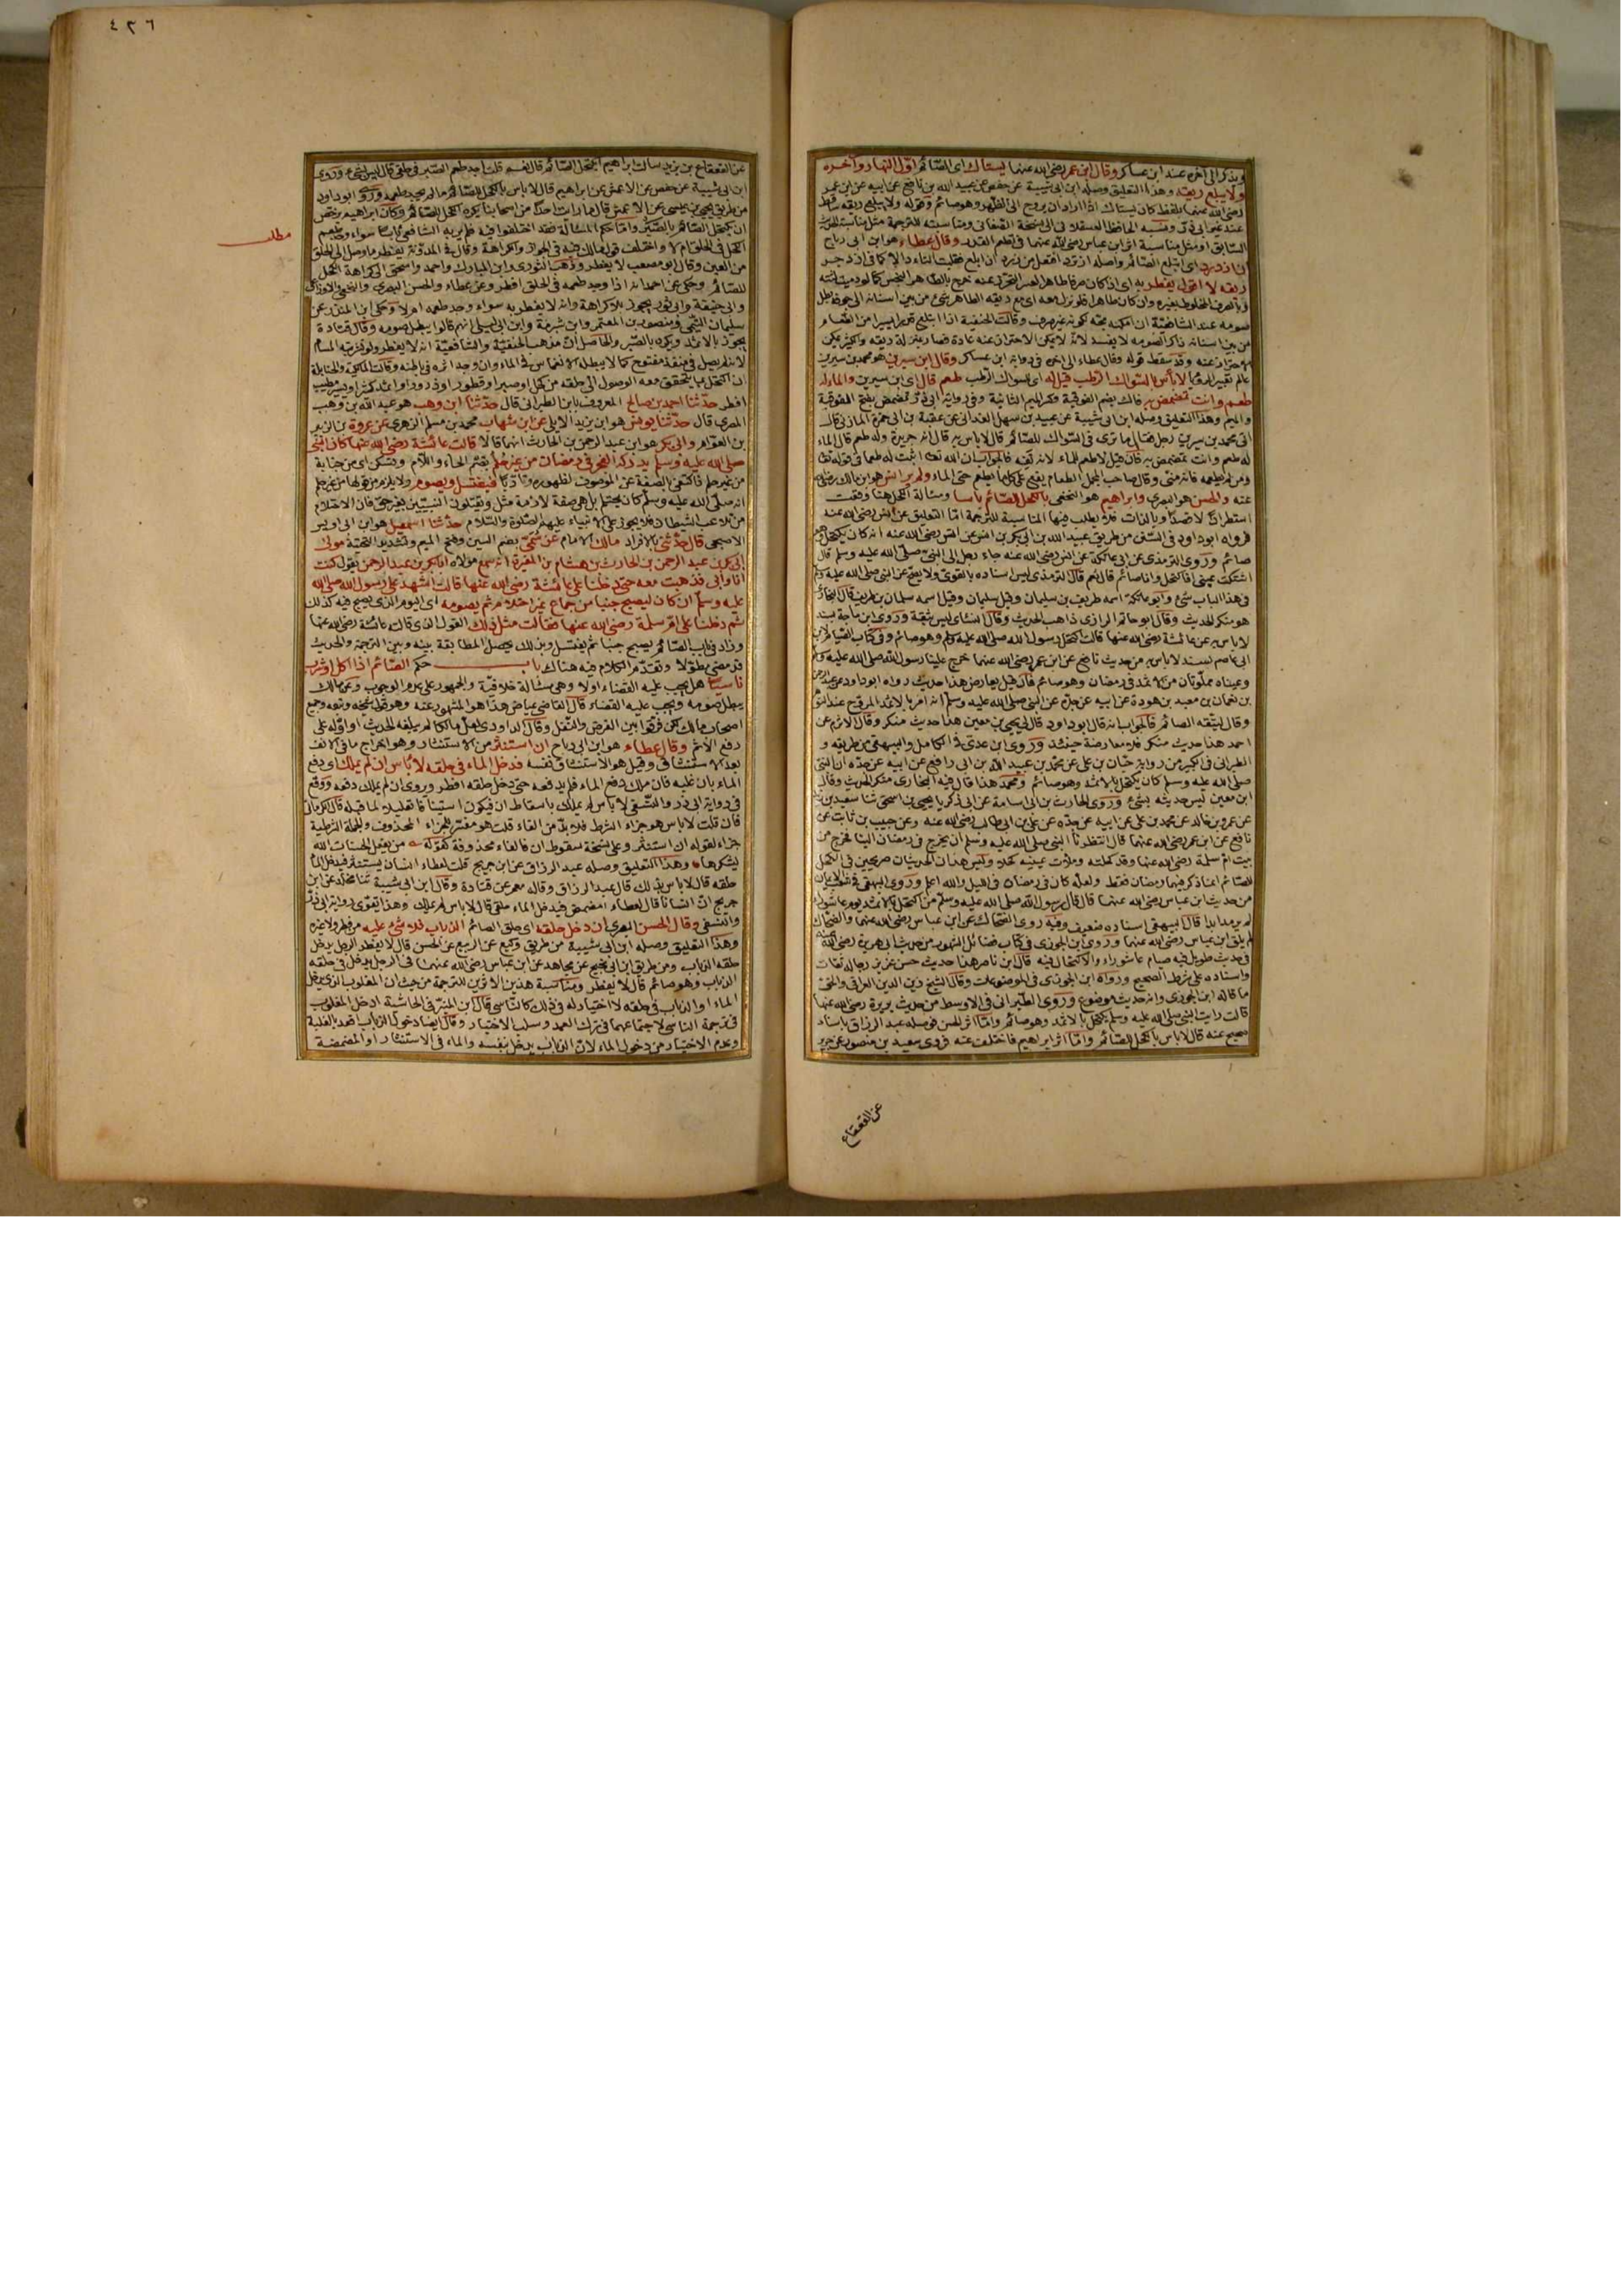 ويذكر الى آخره عند ابن عساكر وقال ابن عمر رضي الله عنهما يستاك اى الصائم اول النهار وآخره
ولا يبلع ريقه وهذا التعليق وصله ابن ابى شيبة عن حفص عن عبيد الله بن نافع عن ابيه عن ابن عمر
رضي الله عنهما بلفظ كان يستاك اذا اراد ان يروح الى الظهر وهو صائم وقوله ولا يبلع ريقه
السابق او مثل مناسبة اثر ابن عباس رضي الله عنهما فى تطعم القدر وقال عطاء هو ابن ابى رباح
ان ازدرد اى ابتلع الصائم واصله ازترد افتعل من زرد اذا بلع فقلبت التاء دالا كما فى ازدجر
ريقه لا اقول يفطر به
صومه عند الشافعية ان امكنه مجه لكونه غير صرف وقالت الحنفية اذا ابتلع قدرا يسيرا من الطعام
من بين اسنانه ذاكرا لصومه لا يفسد لانه لا يمكن الاحتراز عنه عادة فصار بمنزلة ريقه والكثير يمكن
الاحتراز عنه وقد سقط قوله وقال عطاء الى آخره فى رواية ابن عساكر وقال ابن سيرين هو محمد بن سيرين
لا بأس بالسواك الرطب قيل له اى السواك الرطب طعم قال اى ابن سيرين والماء له
طعم وانت تمضمض به
والميم وهذا التعليق وصله ابن ابى شيبة عن عبيد بن سهل الغدانى عن عقبة بن ابى حمزة المازنى قال
اتى محمد بن سيرين رجل فقال ما ترى فى السواك للصائم قال لا باس به قال انه جريدة وله طعم قال الماء
له طعم وانت تمضمض به
عنه والحسن هو البصري وابراهيم هو النخعي بالكحل للصائم بأسا ومسألة الكحل هنا وقعت
استطرادا لا قصدا وبالذات فلا يطلب فيها المناسبة للترجمة اما التعليق عن انس رضي الله عنه
فرواه ابو داود فى السنن من طريق عبيد الله بن ابى بكر بن انس عن انس رضي الله عنه انه كان يكتحل وهو
صائم وروى الترمذى عن ابى عاتكة عن انس رضي الله عنه جاء رجل الى النبى صلى الله عليه وسلم قال
اشتكت عينى افاكتحل وانا صائم قال نعم قال الترمذى ليس اسناده بالقوى ولا يصح عن النبى صلى الله عليه وسلم
فى هذا الباب شئ وابو عاتكة اسمه طريف بن سليمان وقيل سليمان وقيل اسمه سلمان بن طريف قال البخارى
هو منكر الحديث وقال ابو حاتم الرازى ذاهب الحديث وقال النسائى ليس بثقة وروى ابن ماجة بسند
لا باس به عن عائشة رضي الله عنها قالت اكتحل رسول الله صلى الله عليه وسلم وهو صائم وفى كتاب الصيام لابن
ابى عاصم بسند لا باس به من حديث نافع عن ابن عمر رضي الله عنهما خرج علينا رسول الله صلى الله عليه وسلم
وعيناه مملوتان من الاثمد فى رمضان وهو صائم فان قيل يعارض هذا حديث رواه ابو داود عن عبد الرحمن
بن نعمان بن معبد بن هوذة عن ابيه عن جده عن النبى صلى الله عليه وسلم انه امر بالاثمد المروح عند النوم
وقال ليتقه الصائم فالجواب انه قال ابو داود قال لى يحيى بن معين هذا حديث منكر وقال الاثرم عن
احمد هذا حديث منكر فلا معارضة حينئذ وروى ابن عدى فى الكامل والبيهقى من طريقه و
الطبرانى فى الكبير من رواية حبان بن على عن محمد بن عبيد الله بن ابى رافع عن ابيه عن جده ان النبى
صلى الله عليه وسلم كان يكتحل بالاثمد وهو صائم ومحمد هذا قال فيه البخارى منكر الحديث وقال
ابن معين ليس حديثه بشئ
عن عمرو بن خالد عن محمد بن على عن ابيه عن جده عن على بن ابى طالب رضي الله عنه وعن حبيب بن ثابت عن
نافع عن ابن عمر رضي الله عنهما قال انتظرنا النبى صلى الله عليه وسلم ان يخرج فى رمضان الينا فخرج من
بيت ام سلمة رضي الله عنها وقد كحلته وملات عينيه كحلا وليس هذان الحديثان صريحين فى الكحل
للصائم انما ذكر فيهما رمضان فقط ولعله كان فى رمضان فى الليل والله اعلم وروى البيهقى فى شعب الايمان
من حديث ابن عباس رضي الله عنهما قال قال رسول الله صلى الله عليه وسلم من اكتحل بالاثمد يوم عاشوراء
لم يرمد ابدا قال البيهقى اسناده ضعيف وفيه روى الضحاك عن ابن عباس رضي الله عنهما والضحاك
لم يلق ابن عباس رضي الله عنهما وروى ابن الجوزى فى كتاب فضائل الشهور من حديث ابى هريرة رضي الله عنه
فى حديث طويل فيه صيام عاشوراء والاكتحال فيه قال ابن ناصر هذا حديث حسن عزيز رجاله ثقات
واسناده على شرط الصحيح ورواه ابن الجوزى فى الموضوعات وقال الشيخ زين الدين العراقى والحق
ما قاله ابن الجوزى وانه حديث موضوع وروى الطبرانى فى الاوسط من حديث بريرة رضي الله عنها
قالت رايت النبى صلى الله عليه وسلم يكتحل بالاثمد وهو صائم واما اثر الحسن فوصله عبد الرزاق باسناد
صحيح عنه قال لا باس بالكحل للصائم واما اثر ابراهيم فاختلف عنه فروى سعيد بن منصور عن جرير
عن القعقاع
٤٢٦
عن القعقاع بن يزيد سالت ابراهيم ايكتحل الصائم قال نعم قلت اجد طعم الصبر فى حلقى قال ليس بشئ وروى
ابن ابى شيبة عن حفص عن الاعمش عن ابراهيم قال لا باس بالكحل للصائم ما لم يجد طعمه وروى ابو داود
من طريق يحيى بن عيسى عن الاعمش قال ما رايت احدا من اصحابنا يكره الكحل للصائم وكان ابراهيم يرخص
ان يكتحل الصائم بالصبر واما حكم المسألة فقد اختلفوا فيه فلم ير به الشافعى باسا سواء وجد طعم
مطلب
الكحل فى الحلق ام لا واختلف قول مالك فيه فى الجواز والكراهة وقال فى المدونة يفطر ما وصل الى الحلق
من العين وقال ابو مصعب لا يفطر وذهب الثورى وابن المبارك واحمد واسحق الى كراهة الكحل
للصائم وحكى عن احمد انه اذا وجد طعمه فى الحلق افطر وعن عطاء والحسن البصري والنخعى والاوزاعى
وابى حنيفة وابى ثور يجوز بلا كراهة وانه لا يفطر به سواء وجد طعمه ام لا وحكى ابن المنذر عن
سليمان التيمى ومنصور بن المعتمر وابن شبرمة وابن ابى ليلى انهم قالوا يبطل صومه وقال قتادة
يجوز بالاثمد ويكره بالصبر والحاصل ان مذهب الحنفية والشافعية انه لا يفطر
لانه لم يصل فى منفذ مفتوح كما لا يبطله الانغماس فى الماء وان وجد اثره فى باطنه وقالت المالكية والحنابلة
ان اكتحل بما يتحقق معه الوصول الى حلقه من كحل او صبر او قطور او ذرور او اثمد كثير او يسير مطيب
افطر حدثنا احمد بن صالح المعروف بابن الطبرانى قال حدثنا ابن وهب هو عبد الله بن وهب
المصرى قال حدثنا يونس هو ابن يزيد الايلى عن ابن شهاب محمد بن مسلم الزهرى عن عروة بن الزبير
بن العوام وابى بكر هو ابن عبد الرحمن بن الحارث انهما قالا قالت عائشة رضي الله عنها كان النبى
صلى الله عليه وسلم يدركه الفجر فى رمضان من غير حلم بضم الحاء واللام وتسكن اى من جنابة
من غير حلم فاكتفى بالصفة عن الموصوف لظهوره فيغتسل ويصوم
انه صلى الله عليه وسلم كان يحتلم بل هى صفة لازمة مثل ويقتلون النبيين بغير حق فان الاحتلام
من تلاعب الشيطان فلا يجوز على الانبياء عليهم الصلوة والسلام حدثنا اسمعيل هو ابن ابى اويس
الاصبحى قال حدثنى بالافراد مالك الامام عن سمى بضم السين وفتح الميم وتشديد التحتية مولى
ابى بكر بن عبد الرحمن بن الحارث بن هشام بن المغيرة انه سمع مولاه ابا بكر بن عبد الرحمن يقول كنت
انا وابى فذهبت معه حتى دخلنا على عائشة رضي الله عنها قالت اشهد على رسول الله صلى الله
عليه وسلم ان كان ليصبح جنبا من جماع غير احتلام ثم يصومه اى اليوم الذى يصبح فيه كذلك
ثم دخلنا على ام سلمة رضي الله عنها فقالت مثل ذلك القول الذى قالته عائشة رضي الله عنها
وزاد فى باب الصائم يصبح جنبا ثم يغتسل وبذلك يحصل المطابقة بينه وبين الترجمة والحديث
قد مضى مطولا وتقدم الكلام فيه هناك باب حكم الصائم اذا اكل او شرب
ناسيا هل يجب عليه القضاء اولا وهى مسألة خلافية والجمهور على عدم الوجوب وعن مالك
يبطل صومه ويجب عليه القضاء قال القاضى عياض هذا هو المشهور عنه وهو قول شيخه ربيعة وجميع
اصحاب مالك لكن فرقوا بين الفرض والنفل وقال الداودى لعل مالكا لم يبلغه الحديث او اوله على
رفع الاثم وقال عطاء هو ابن ابى رباح ان استنثر من الاستنثار وهو اخراج ما فى الانف
بعد الاستنشاق وقيل هو الاستنشاق نفسه فدخل الماء فى حلقه لا باس ان لم يملك اى دفع
الماء بان غلبه فان ملك دفع الماء فلم يدفعه حتى دخل حلقه افطر وروى ان لم يملك دفعه ووقع
فى رواية ابى ذر والنسفى لا باس لم يملك باسقاط ان فيكون استينافا تعليلا لما قبله قال الكرمانى
فان قلت لا باس هو جزاء الشرط فلا بد من الفاء قلت هو مفسر للجزاء المحذوف والجملة الشرطية
جزاء لقوله ان استنثر وعلى نسخة سقوط ان فالفاء محذوفة كقوله من يفعل الحسنات الله
يشكرها وهذا التعليق وصله عبد الرزاق عن ابن جريج قلت لعطاء انسان يستنثر فيدخل الماء
حلقه قال لا باس بذلك قال عبد الرزاق وقاله معمر عن قتادة وقال ابن ابى شيبة ثنا مخلد عن ابن
جريج ان انسانا قال لعطاء امضمض فيدخل الماء حلقى قال لا باس لم يملك وهذا يقوى رواية ابى ذر
والنسفى وقال الحسن البصرى ان دخل حلقه اى حلق الصائم الذباب فلا شئ عليه من فطر ولا غيره
وهذا التعليق وصله ابن ابى شيبة من طريق وكيع عن الربيع عن الحسن قال لا يفطر الرجل يدخل
حلقه الذباب ومن طريق ابن ابى نجيح عن مجاهد عن ابن عباس رضي الله عنهما فى الرجل يدخل فى حلقه
الذباب وهو صائم قال لا يفطر ومناسبة هذين الاثرين للترجمة من حيث ان المغلوب الذى يدخل
الماء او الذباب فى حلقه لا اختيار له فى ذلك كالناسى قال ابن المنير فى الحاشية ادخل المغلوب
فى ترجمة الناسى لاجتماعهما فى ترك العمد وسلب الاختيار وقال ايضا دخول الذباب اقعد بالغلبة
وعدم الاختيار من دخول الماء لان الذباب يدخل بنفسه والماء فى الاستنثار او المضمضة